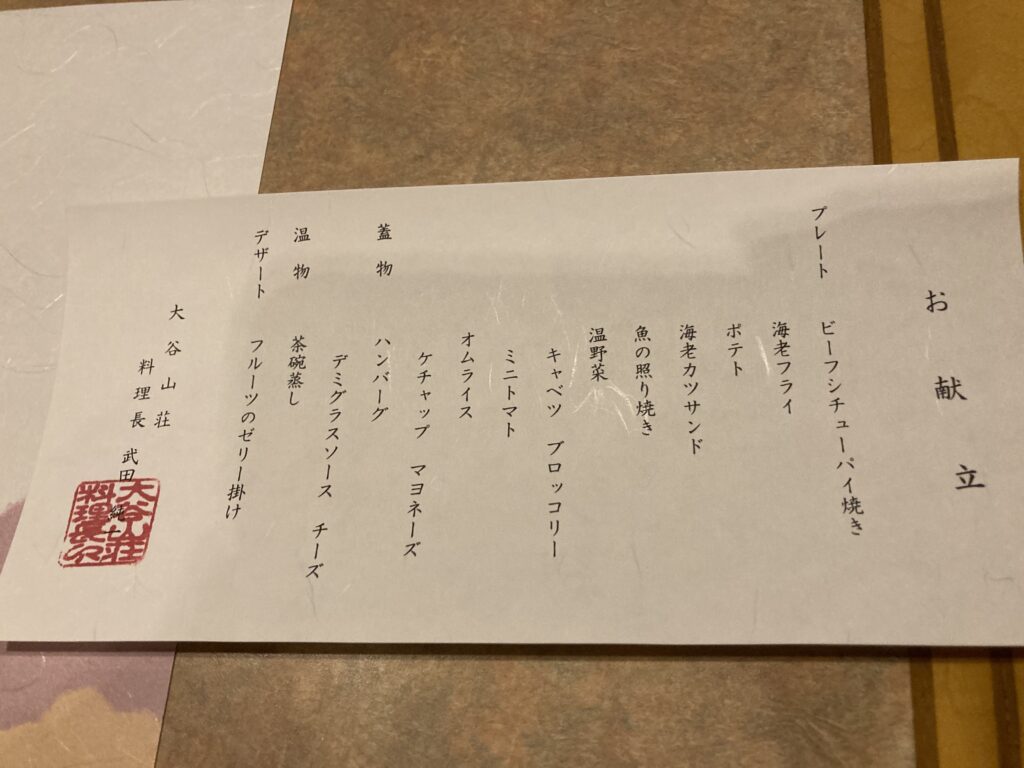 お献立
プレート ビーフシチューパイ焼き
海老フライ
ポテト
海老カツサンド
魚の照り焼き
温野菜
キャベツ ブロッコリー
ミニトマト
オムライス
ケチャップ マヨネーズ
蓋物 ハンバーグ
デミグラスソース チーズ
温物 茶碗蒸し
デザート フルーツのゼリー掛け
大谷山荘
料理長 武田 純
大谷山荘
料理長